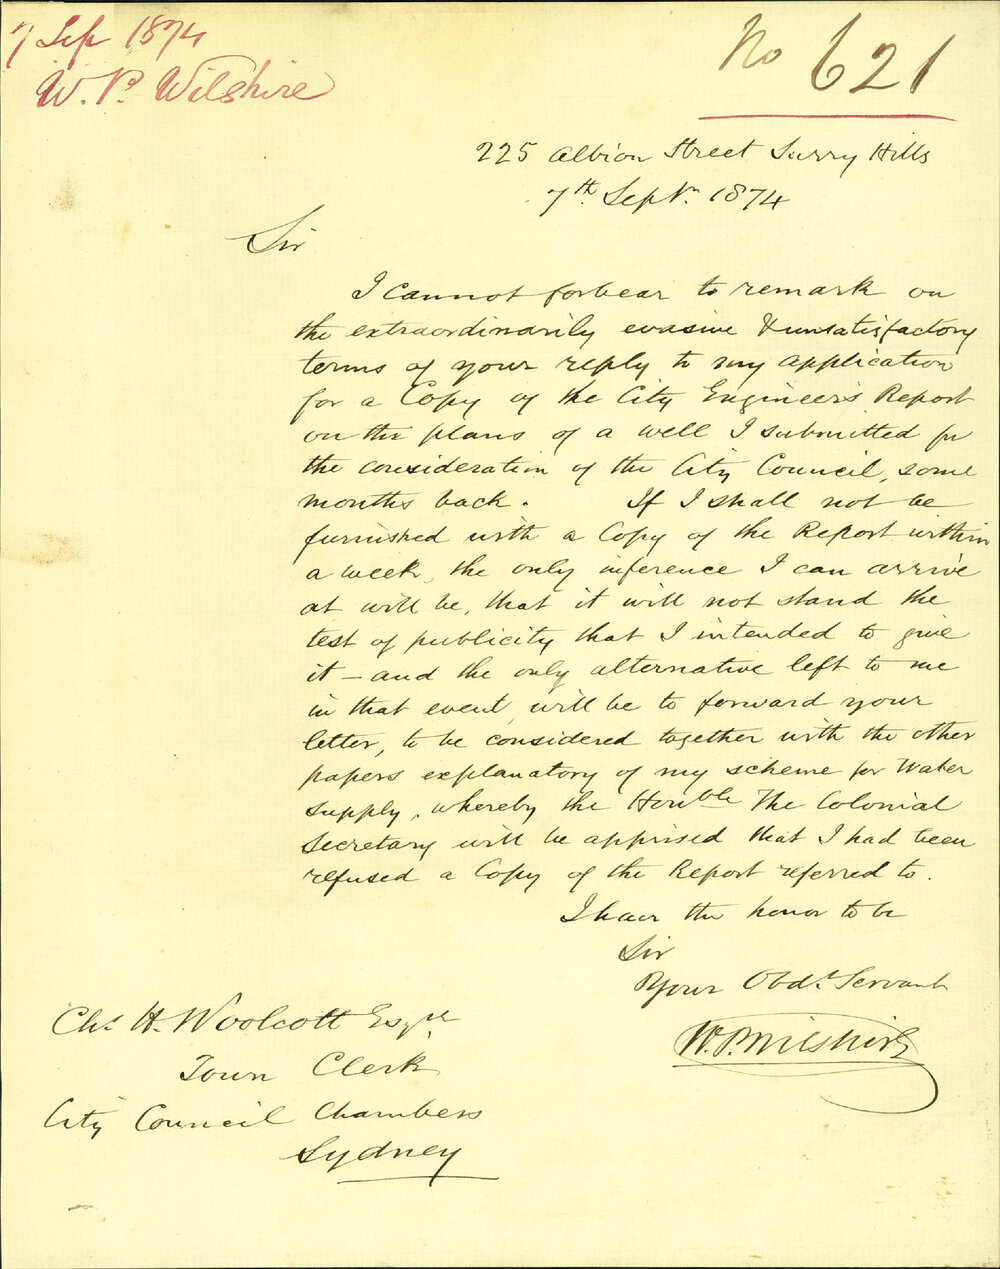 7 Sep 1874
W. P. Wilshire
No 621
225 Albion Street Surry Hills
7th Sepr. 1874
Sir
I cannot forbear to remark on
the extraordinarily evasive & unsatisfactory
terms of your reply to my application
for a Copy of the City Engineer's Report
on the plans of a well I submitted for
the consideration of the City Council, some
months back. If I shall not be
furnished with a Copy of the Report within
a week, the only inference I can arrive
at will be, that it will not stand the
test of publicity that I intended to give
it – and the only alternative left to me
in that event, will be to forward your
letter, to be considered together with the other
papers explanatory of my scheme for Water
Supply, whereby the Honble The Colonial
Secretary will be apprised that I had been
refused a Copy of the Report referred to.
I have the honor to be
Sir
Your Obdt. Servant
W. P. Wilshire
Chs. H. Woolcott Esqre
Town Clerk
City Council Chambers
Sydney